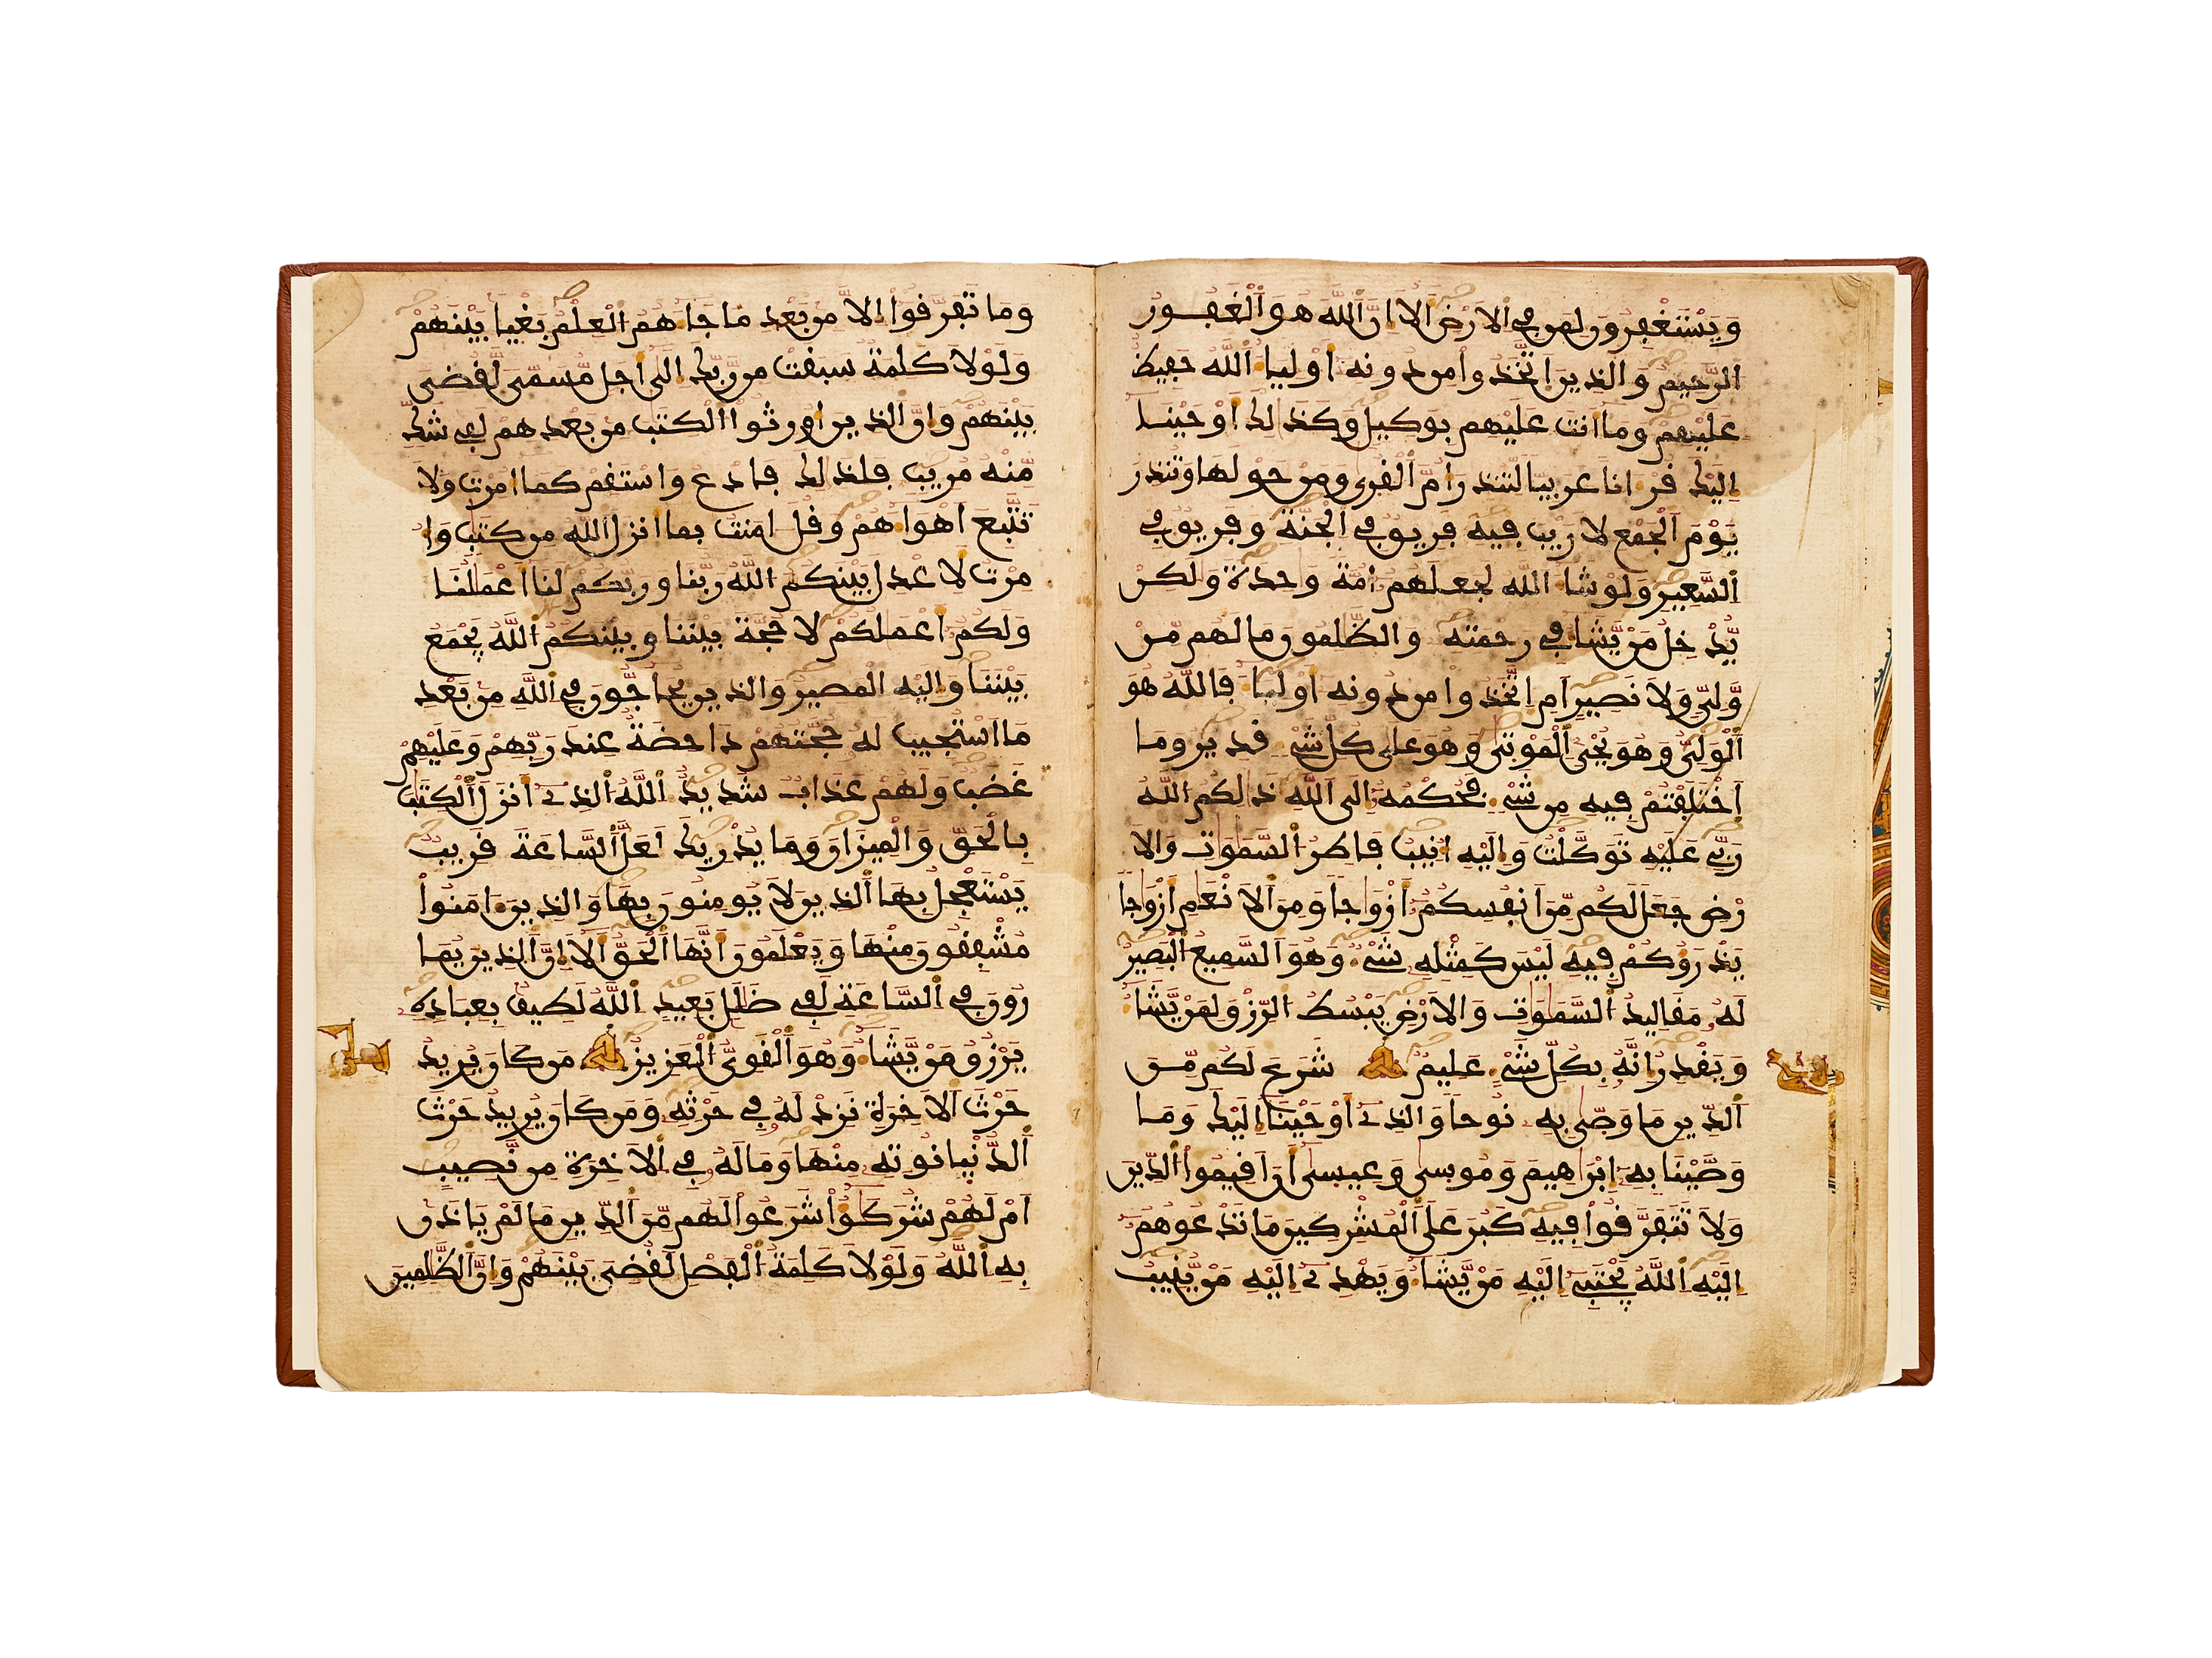 وَيَسْتَغْفِرُونَ لِمَن فِي ٱلَارْضِ أَلَآ إِنَّ ٱللَّهَ هُوَ ٱلْغَفُورُ
ٱلرَّحِيمُ وَالذِينَ اَتَّخَذُوا مِن دُونِهِ أَوْلِيَا ٱللَّهُ حَفِيظٌ
عَلَيْهِمْ وَمَا أَنتَ عَلَيْهِم بِوَكِيلٍ وَكَذَلِكَ أَوْحَيْنَا
إِلَيْكَ قُرْانًا عَرَبِيًّا لِّتُنذِرَ أُمَّ ٱلْقُرَى وَمَنْ حَوْلَهَا وَتُنذِرَ
يَوْمَ ٱلْجَمْعِ لَا رَيْبَ فِيهِ فَرِيقٌ فِي ٱلْجَنَّةِ وَفَرِيقٌ فِي
ٱلسَّعِيرِ وَلَوْ شَا ٱللَّهُ لَجَعَلَهُمْ أُمَّةً وَحِدَةً وَلَكِنْ
يُّدْخِلُ مَنْ يَّشَا فِي رَحْمَتِهِ وَالظَّلِمُونَ مَا لَهُم مِّنْ
وَّلِيٍّ وَلَا نَصِيرٍ أَمِ اِتَّخَذُوا مِن دُونِهِ أَوْلِيَا فَاللَّهُ هُوَ
ٱلْوَلِيُّ وَهُوَ يُحْيِ ٱلْمَوْتَى وَهُوَ عَلَى كُلِّ شَيْءٍ قَدِيرٌ وَمَا
اَخْتَلَفْتُمْ فِيهِ مِن شَيْءٍ فَحُكْمُهُ إِلَى ٱللَّهِ ذَلِكُمُ ٱللَّهُ
رَبِّي عَلَيْهِ تَوَكَّلْتُ وَإِلَيْهِ أُنِيبُ فَاطِرُ ٱلسَّمَوَاتِ وَالَا
رْضِ جَعَلَ لَكُم مِّنَ اَنفُسِكُمْ أَزْوَاجًا وَمِنَ ٱلَانْعَمِ أَزْوَاجًا
يَذْرَؤُكُمْ فِيهِ لَيْسَ كَمِثْلِهِ شَيْءٌ وَهُوَ ٱلسَّمِيعُ ٱلْبَصِيرُ
لَهُ مَقَالِيدُ ٱلسَّمَوَاتِ وَالَارْضِ يَبْسُطُ ٱلرِّزْقَ لِمَنْ يَّشَا
وَيَقْدِرُ إِنَّهُ بِكُلِّ شَيْءٍ عَلِيمٌ شَرَعَ لَكُم مِّنَ
ٱلدِّينِ مَا وَصَّى بِهِ نُوحًا وَالذِي أَوْحَيْنَا إِلَيْكَ وَمَا
وَصَّيْنَا بِهِ إِبْرَاهِيمَ وَمُوسَى وَعِيسَى أَنَ اَقِيمُوا ٱلدِّينَ
وَلَا تَتَفَرَّقُوا فِيهِ كَبُرَ عَلَى ٱلْمُشْرِكِينَ مَا تَدْعُوهُمُ
إِلَيْهِ ٱللَّهُ يَجْتَبِي إِلَيْهِ مَنْ يَّشَا وَيَهْدِي إِلَيْهِ مَنْ يُّنِيبُ
وَمَا تَفَرَّقُوا إِلَّا مِنْ بَعْدِ مَا جَاهُمُ ٱلْعِلْمُ بَغْيًا بَيْنَهُمْ
وَلَوْلَا كَلِمَةٌ سَبَقَتْ مِن رَّبِّكَ إِلَى أَجَلٍ مُّسَمًّى لَّقُضِيَ
بَيْنَهُمْ وَإِنَّ ٱلذِينَ أُورِثُوا ٱلْكِتَبَ مِنْ بَعْدِهِمْ لَفِي شَكٍّ
مِّنْهُ مُرِيبٍ فَلِذَلِكَ فَادْعُ وَاسْتَقِمْ كَمَا أُمِرْتَ وَلَا
تَتَّبِعَ اَهْوَاهُمْ وَقُلَ اَمَنتُ بِمَا أَنزَلَ ٱللَّهُ مِن كِتَبٍ وَأُ
مِرْتُ لِأَعْدِلَ بَيْنَكُمُ ٱللَّهُ رَبُّنَا وَرَبُّكُمْ لَنَا أَعْمَلُنَا
وَلَكُمُ أَعْمَلُكُمْ لَا حُجَّةَ بَيْنَنَا وَبَيْنَكُمُ ٱللَّهُ يَجْمَعُ
بَيْنَنَا وَإِلَيْهِ ٱلْمَصِيرُ وَالذِينَ يُحَاجُّونَ فِي ٱللَّهِ مِنْ بَعْدِ
مَا اَسْتُجِيبَ لَهُ حُجَّتُهُمْ دَاحِضَةٌ عِندَ رَبِّهِمْ وَعَلَيْهِمْ
غَضَبٌ وَلَهُمْ عَذَابٌ شَدِيدٌ ٱللَّهُ ٱلذِي أَنزَلَ ٱلْكِتَبَ
بِالْحَقِّ وَالْمِيزَانَ وَمَا يُدْرِيكَ لَعَلَّ ٱلسَّاعَةَ قَرِيبٌ
يَسْتَعْجِلُ بِهَا ٱلذِينَ لَا يُومِنُونَ بِهَا وَالذِينَ ءَامَنُوا
مُشْفِقُونَ مِنْهَا وَيَعْلَمُونَ أَنَّهَا ٱلْحَقُّ أَلَا إِنَّ ٱلذِينَ يُمَا
رُونَ فِي ٱلسَّاعَةِ لَفِي ضَلَلٍ بَعِيدٍ ٱللَّهُ لَطِيفٌ بِعِبَادِهِ
يَرْزُقُ مَنْ يَّشَا وَهُوَ ٱلْقَوِيُّ ٱلْعَزِيزُ مَن كَانَ يُرِيدُ
حَرْثَ ٱلَاخِرَةِ نَزِدْ لَهُ فِي حَرْثِهِ وَمَن كَانَ يُرِيدُ حَرْثَ
ٱلدُّنْيَا نُوتِهِ مِنْهَا وَمَا لَهُ فِي ٱلَاخِرَةِ مِن نَّصِيبٍ
أَمْ لَهُمْ شُرَكَؤُا شَرَعُوا لَهُم مِّنَ ٱلدِّينِ مَا لَمْ يَاذَنْ
بِهِ ٱللَّهُ وَلَوْلَا كَلِمَةُ ٱلْفَصْلِ لَقُضِيَ بَيْنَهُمْ وَإِنَّ ٱلظَّلِمِينَ